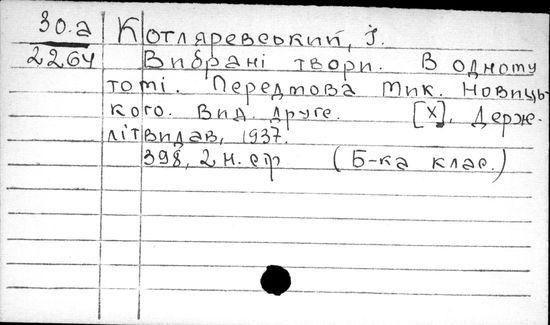 30.а Котляревський, І.
2264 Вибрані твори. В одному
томі. Передмова Мик. Новиць-
кого. Вид. друге. [Х], Держ-
літвидав, 1937.
398, 2 н. ср (Б-ка клас.)